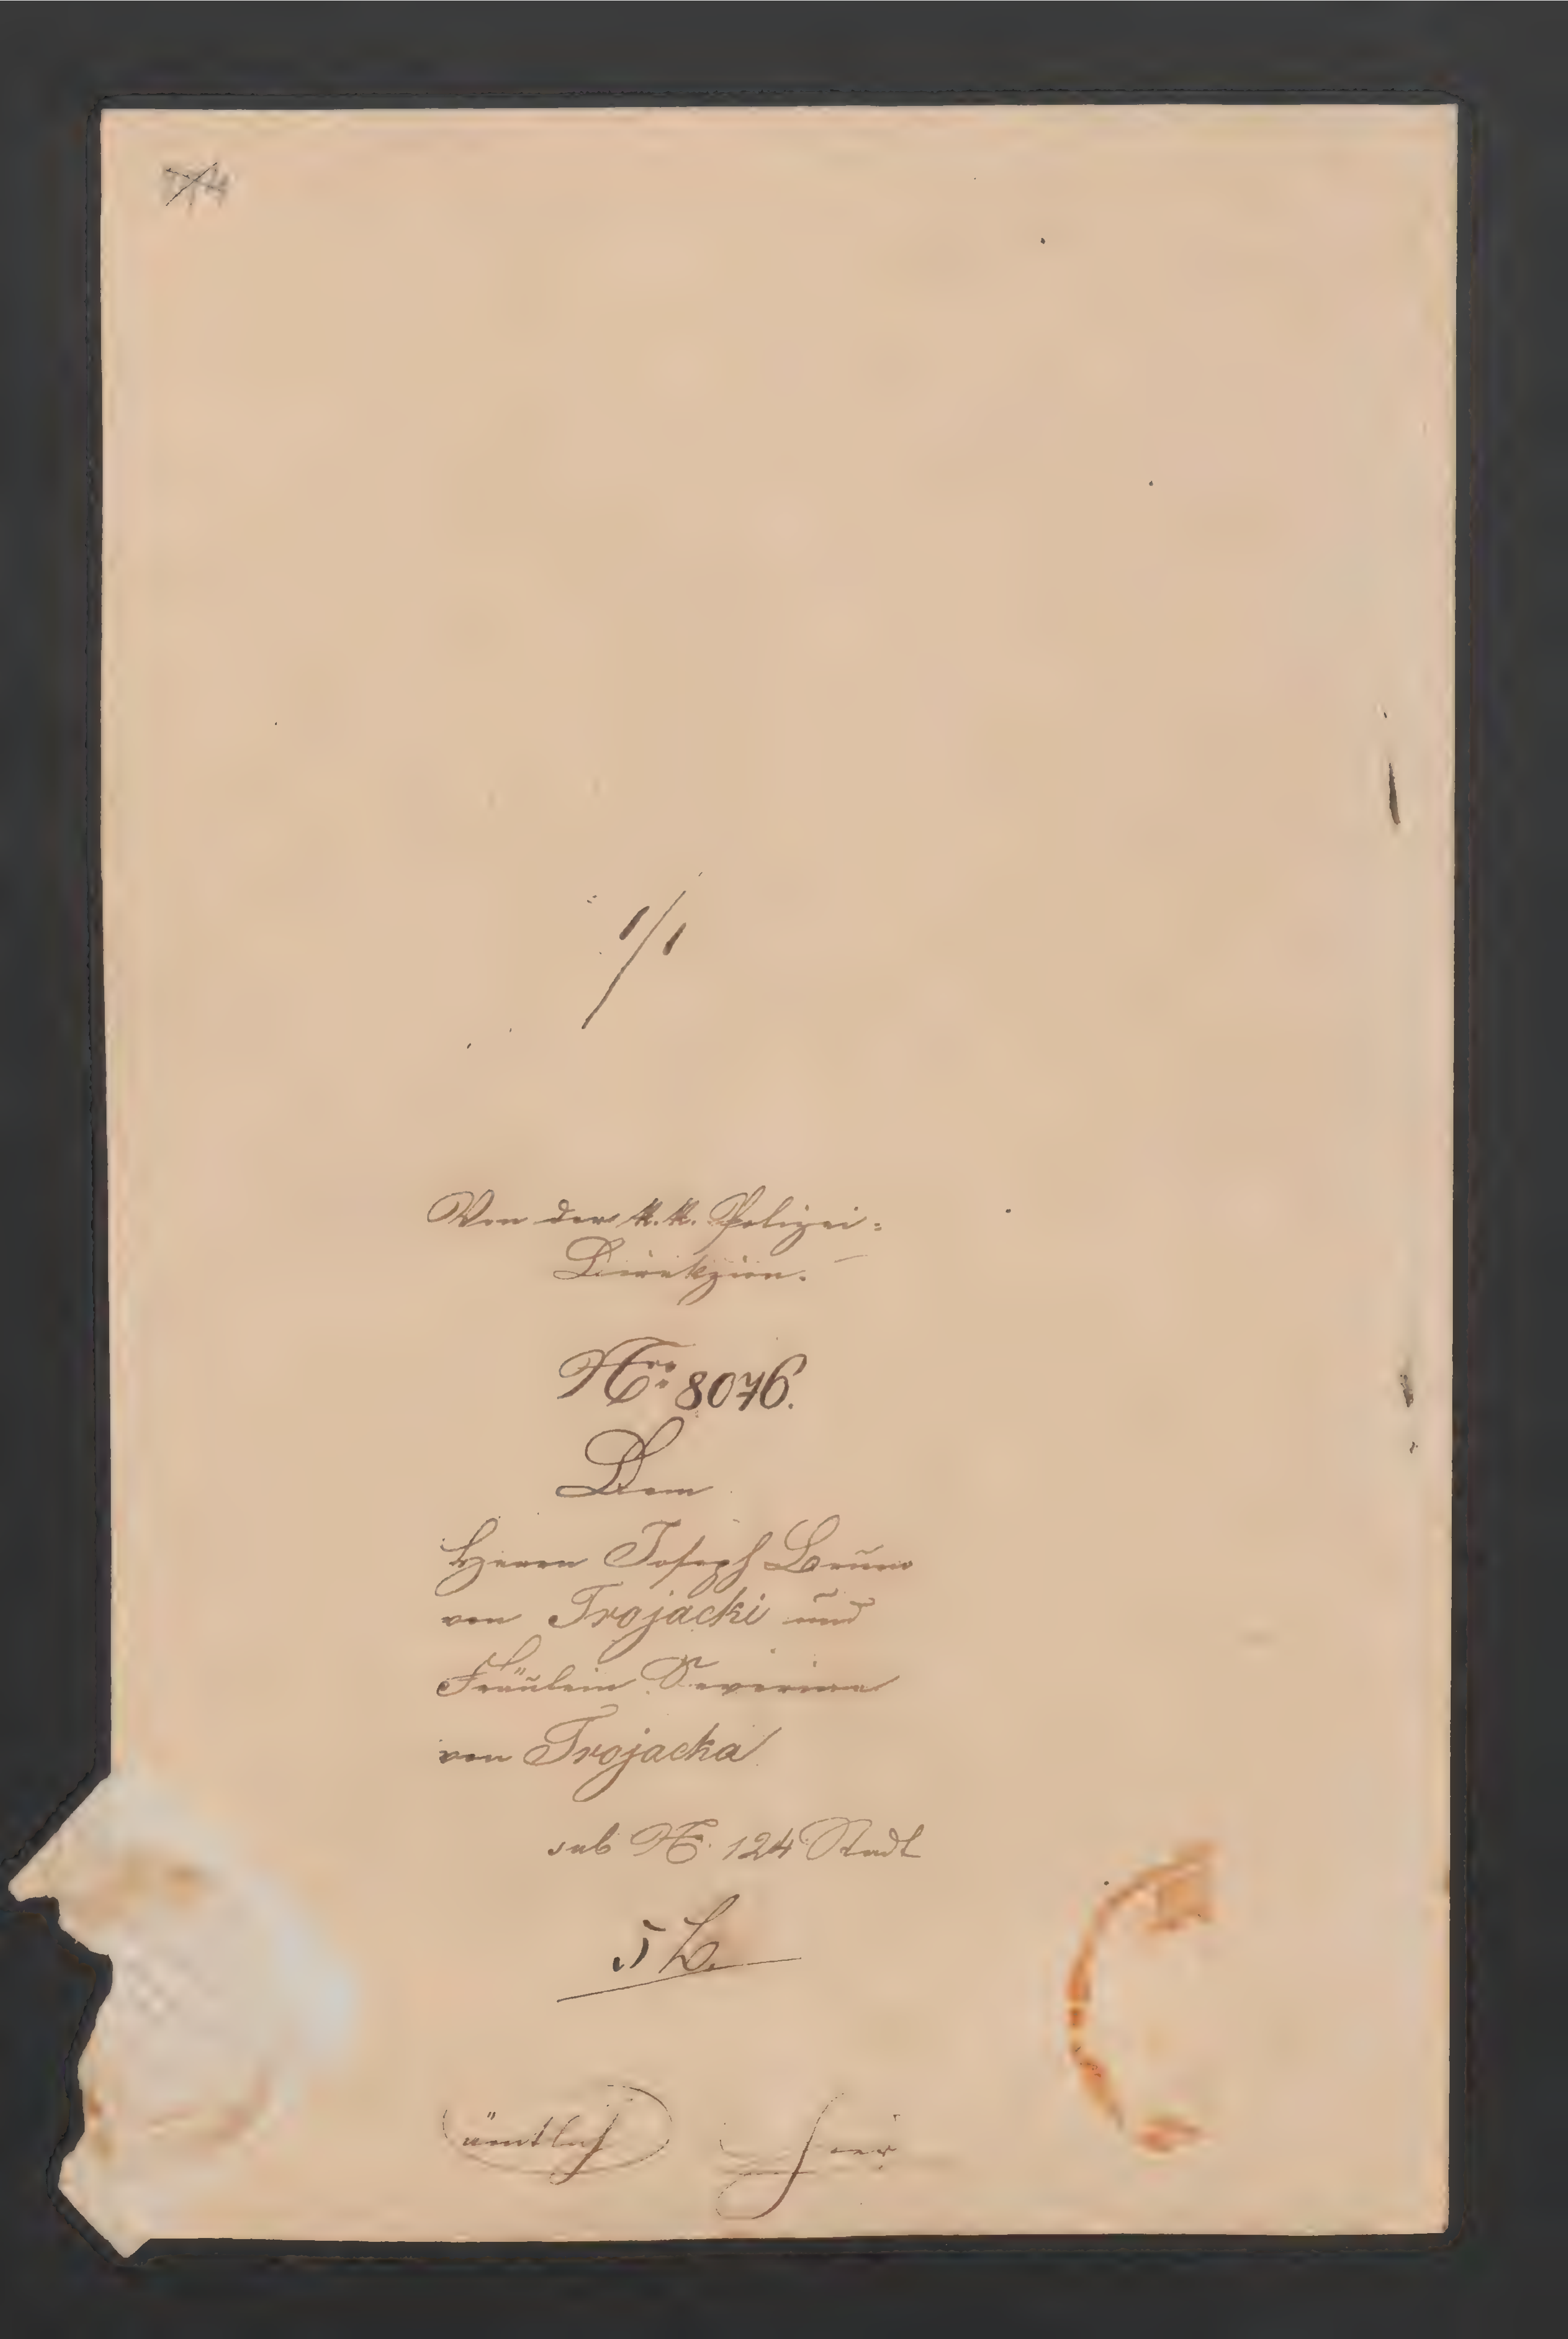 1/1
Von der k. k. Polizei=
Direkzion.
Nro. 8076.
Dem
Herrn Joseph Bruno
von Trojacki und
Fräulein Severina
von Trojacka
sub N. 124 Stadt
ämtlich hier